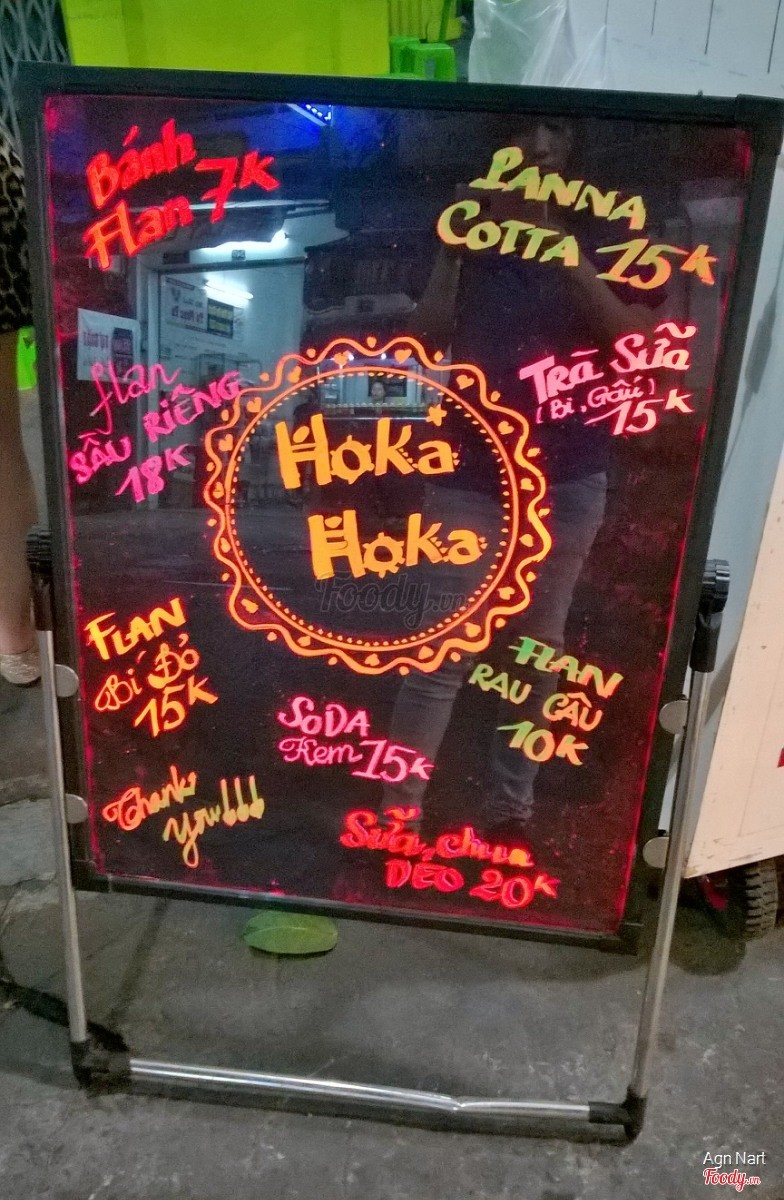 Bánh
Flan 7K
PANNA
COTTA 15K
flan
SẦU RIÊNG
18K
Trà Sữa
(Bi, Gấu)
15K
Hoka
Hoka
Foody.vn
FLAN
Bí Đỏ
15K
FLAN
RAU CÂU
10K
SODA
Kem 15K
Thank
You!!!
Sữa chua
DẺO 20K
Agn Nart
Foody.vn